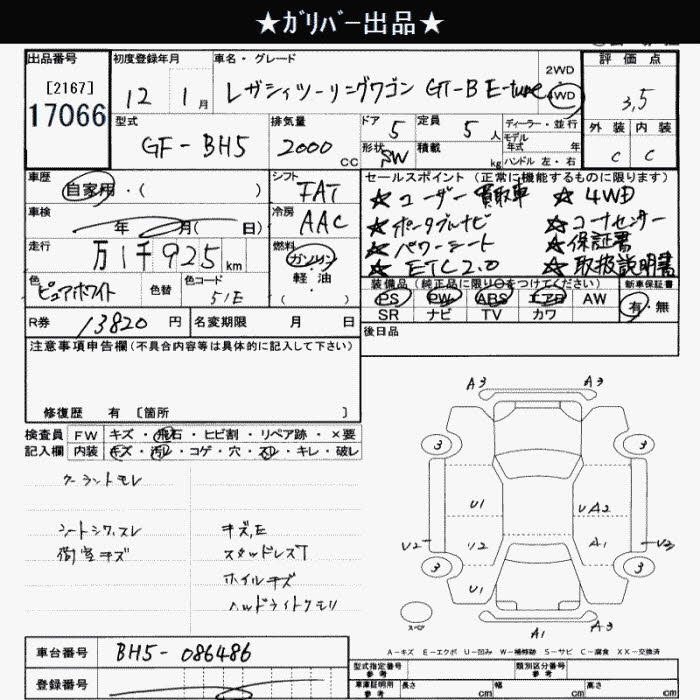 ★ガリバー出品★
出品番号
[2167]
17066
初度登録年月
12 1月
車名・グレード
レガシィツーリングワゴン GT-B E-tune
2WD
4WD
評価点
3.5
外装 内装
C C
型式
GF-BH5
排気量
2000 cc
ドア 5
形状 SW
定員 5 人
積載 kg
ディーラー・並行
モデル
年式 年
ハンドル 左・右
車歴
自家用・( )
シフト
FAT
車検
年 月( 日)
冷房
AAC
走行
万1千925 km
燃料
ガソリン
軽油
( )
色
ピュアホワイト
色替
色コード
51E
R券 13820 円
名変期限 月 日
セールスポイント (正常に機能するものに限ります)
☆ユーザー買取車 ☆4WD
☆ポータブルナビ ☆コーナーセンサー
☆パワーシート ☆保証書
☆ETC2.0 ☆取扱説明書
装備品 (純正品に限り○をつけてください)
PS PW ABS エアロ AW
SR ナビ TV カワ
新車保証書
有・無
後日品
注意事項申告欄(不具合内容等は具体的に記入して下さい)
修復歴 有 〔箇所 〕
検査員 FW キズ・飛石・ヒビ割・リペア跡・×要
記入欄 内装 キズ・汚レ・コゲ・穴・スレ・キレ・破レ
クーラントモレ
シートシワ,スレ
荷室キズ
キズ,E
スタッドレスT
ホイルキズ
ヘッドライトクモリ
A3 A3
3 3
U1 UA2
V2 U2 A1 V2
3 3
U1
スペア
A1 A3
A-キズ E-エクボ U-凹み W-補修跡 S-サビ C-腐食 XX-交換済
車台番号 BH5-086486
登録番号
型式指定番号
参考
類別区分番号
参考
車庫証明用
参考
長さ cm 幅 cm 高さ cm